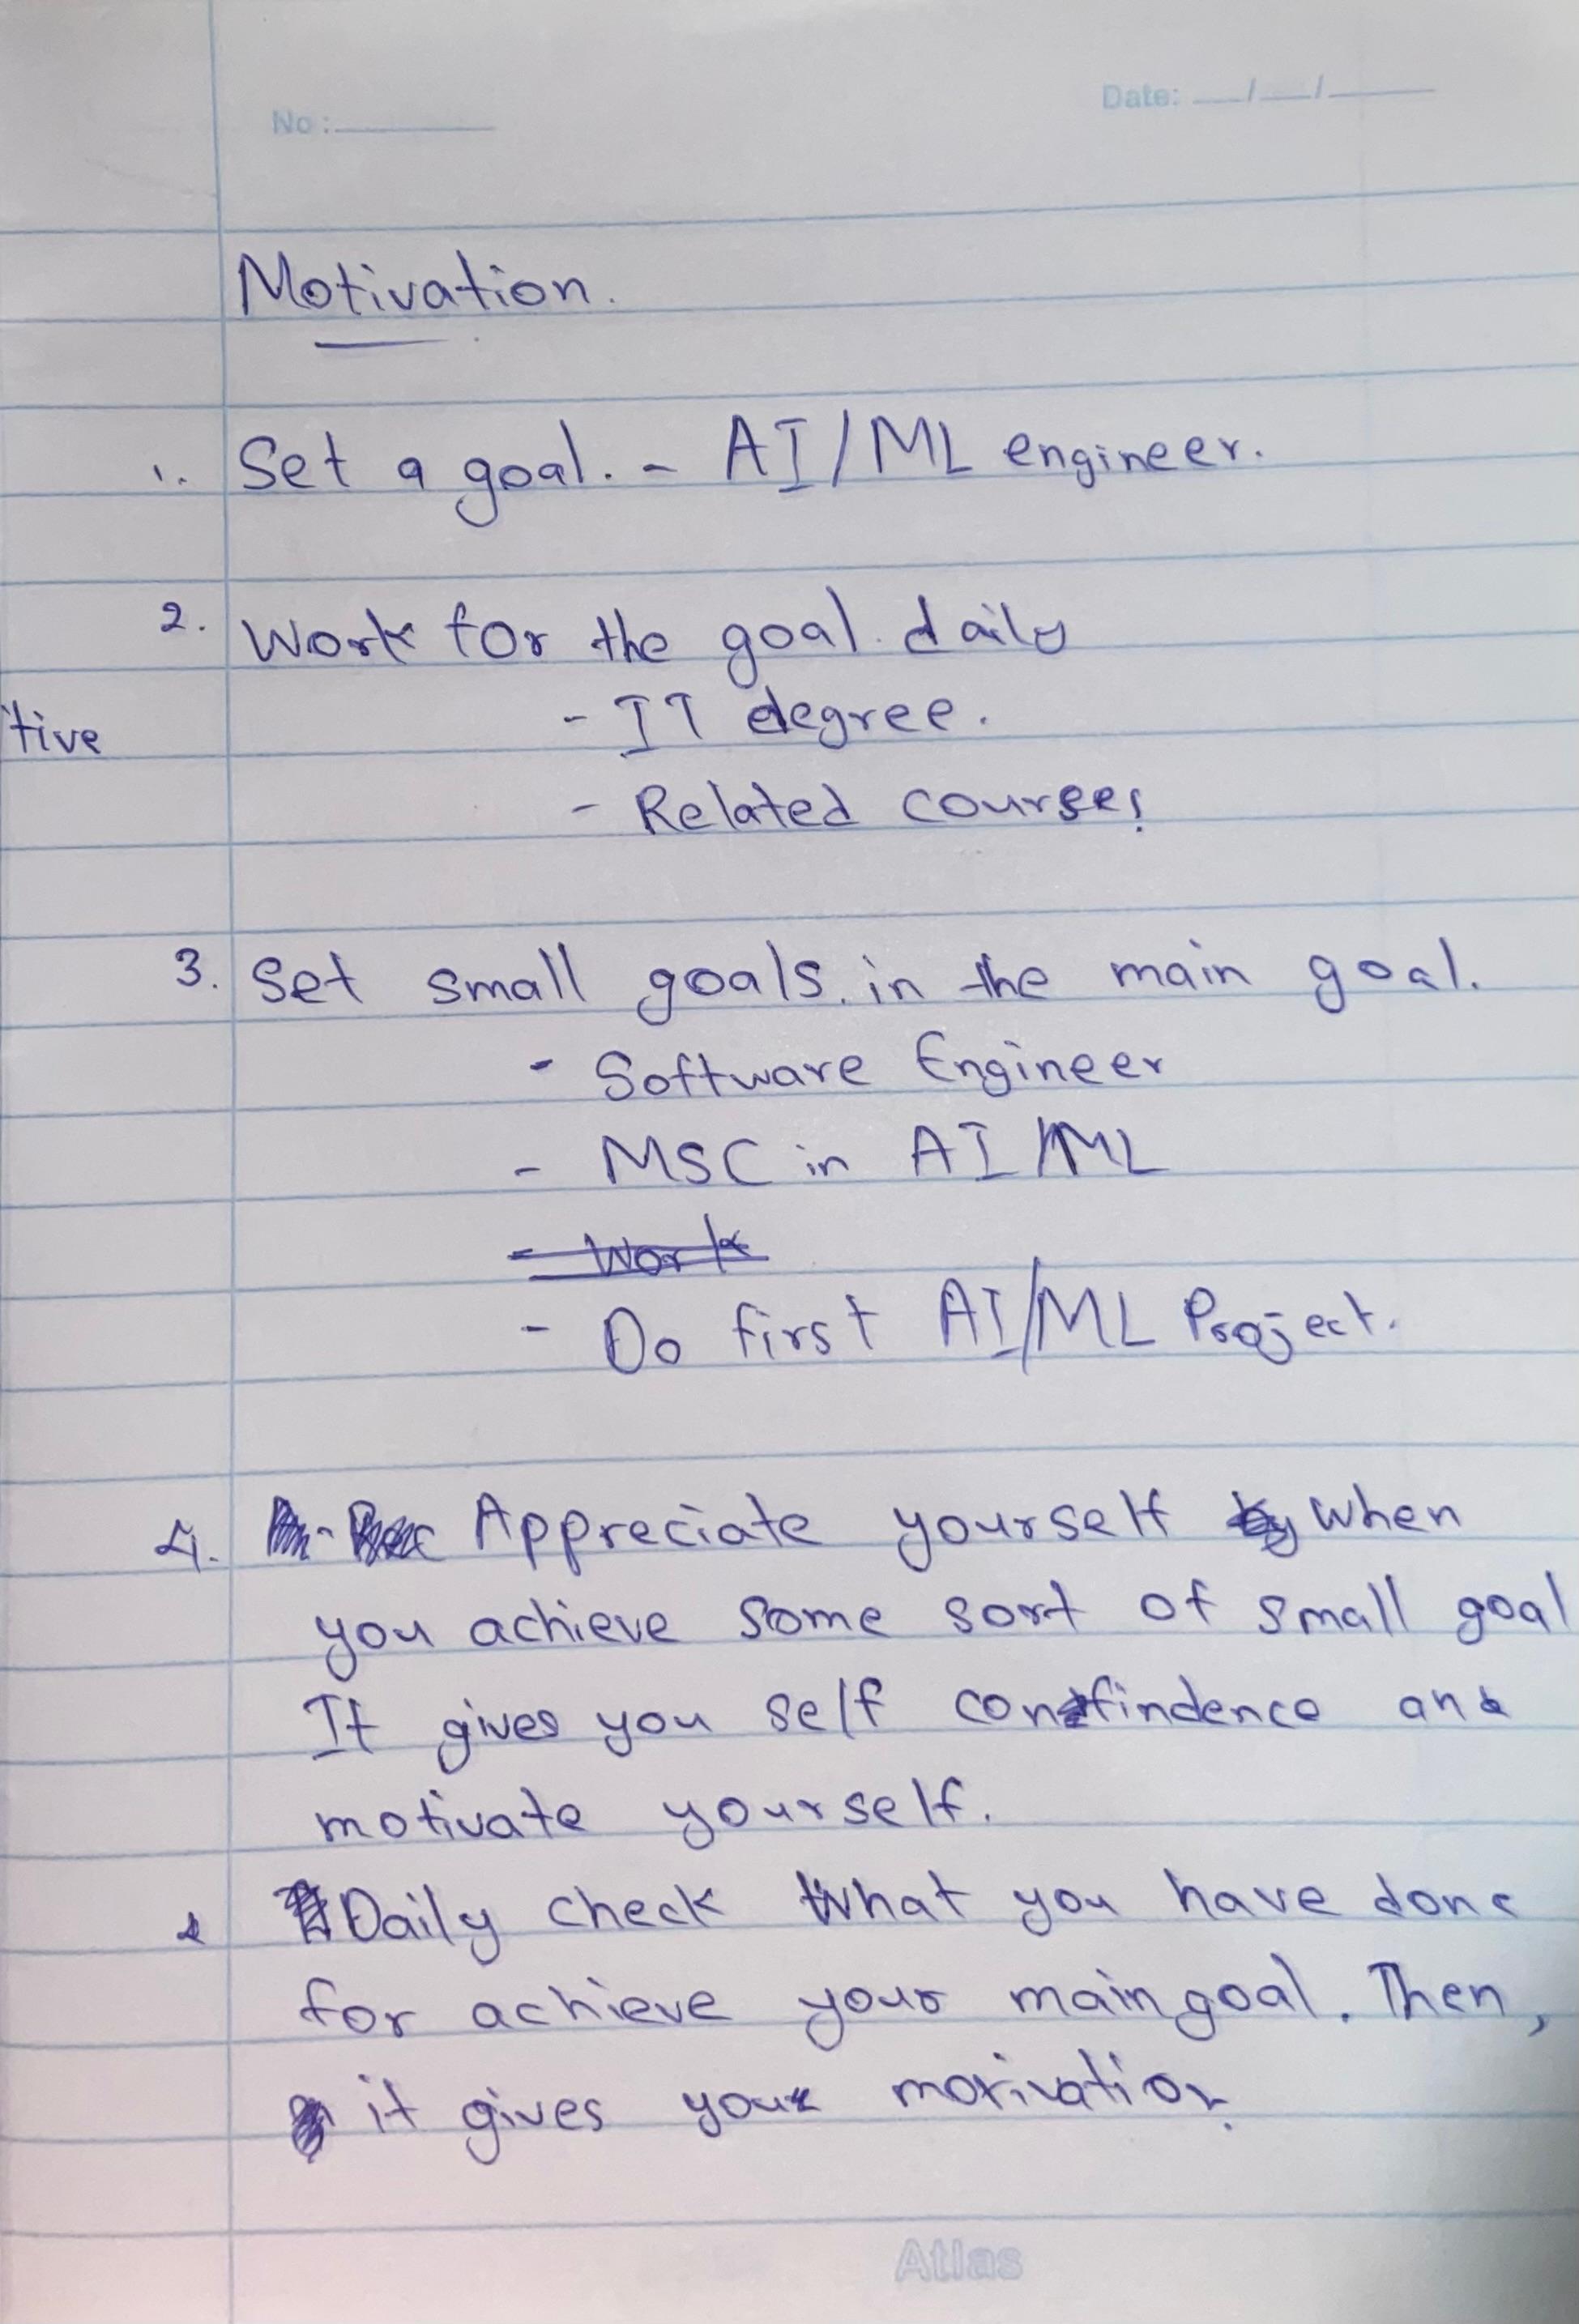 No:
Date: __/__/____
Motivation.
1. Set a goal. - AI/ML engineer.
2. Work for the goal daily
- IT degree.
tive
- Related courses
3. Set small goals. in the main goal.
- Software Engineer
- MSC in AI/ML
- Work
- Do first AI/ML Project.
4. Appreciate yourself when
you achieve some sort of small goal
It gives you self confindence and
motivate yourself.
Daily check what you have done
for achieve your main goal. Then,
it gives your motivation.
Atlas